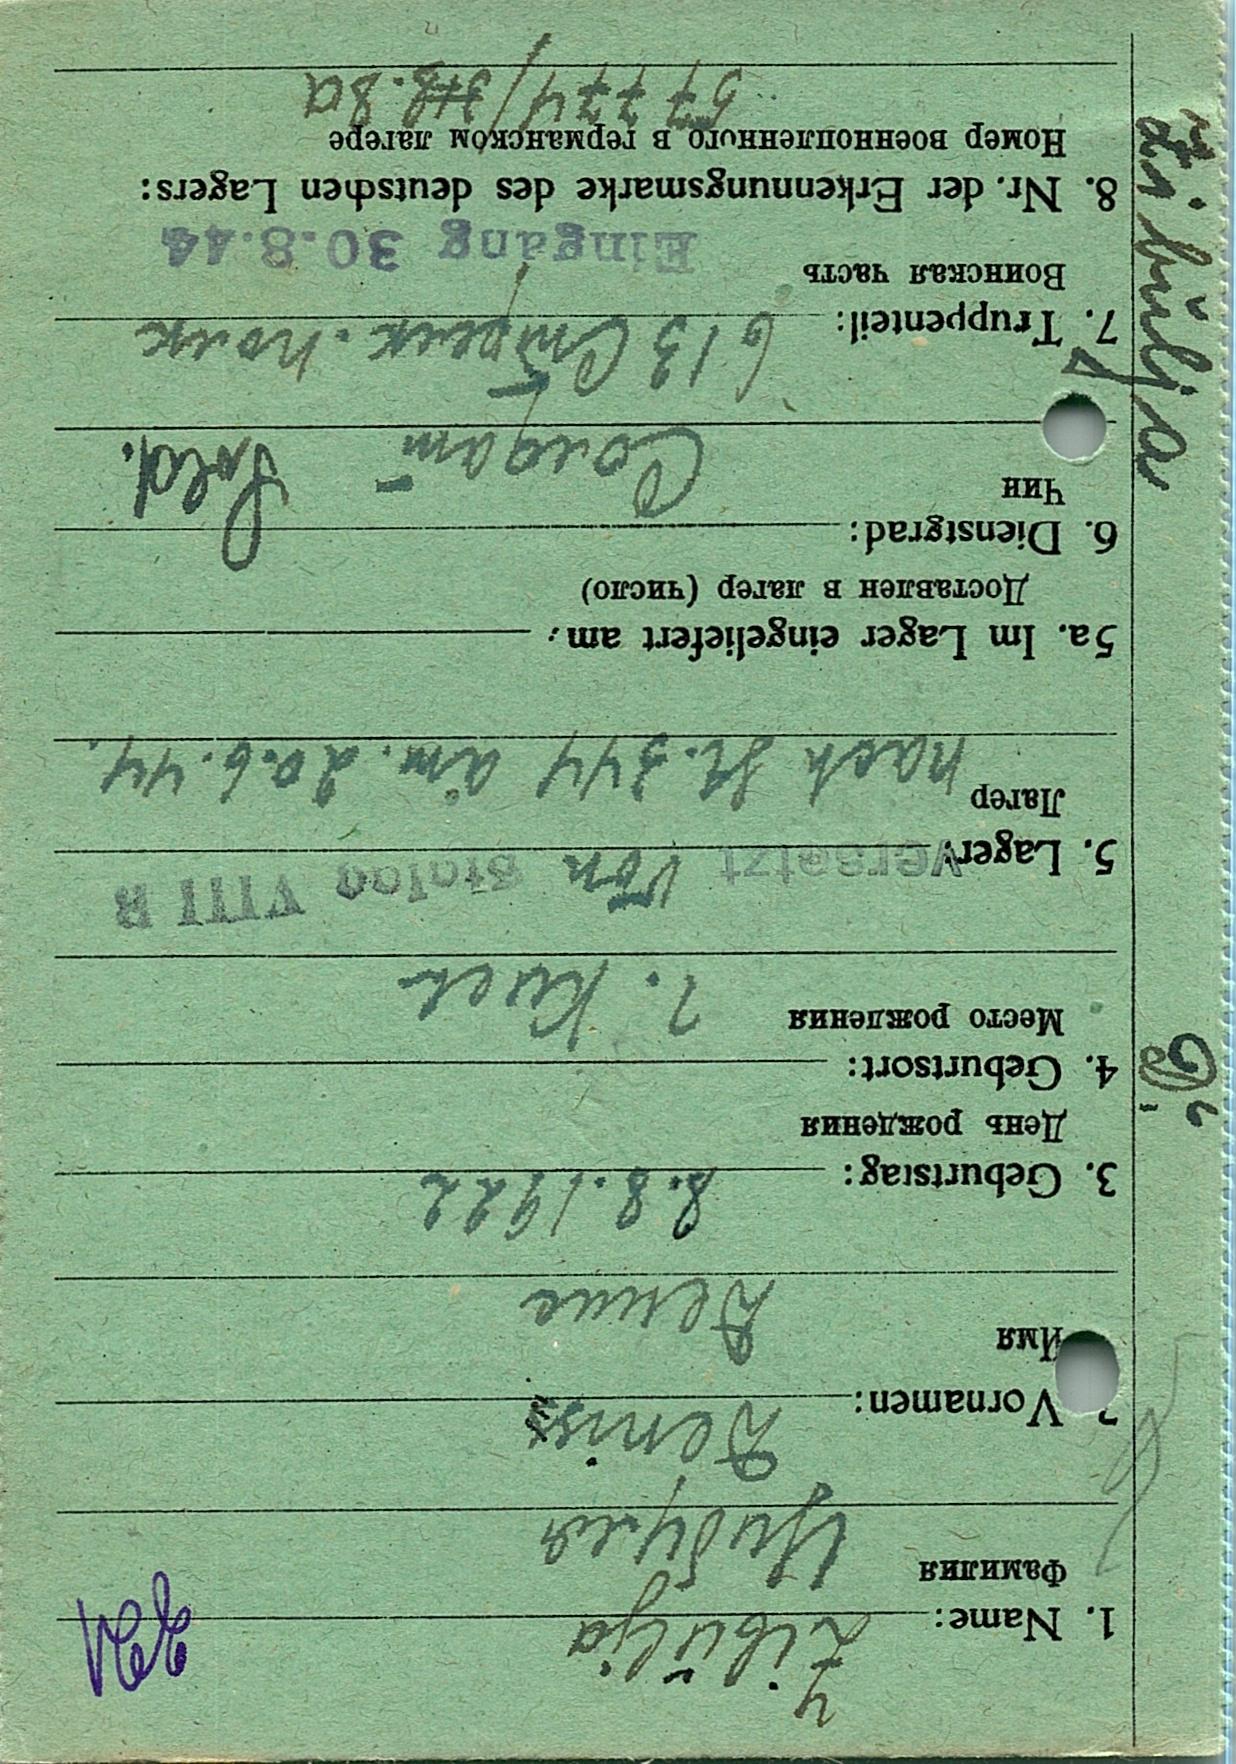 Zibulja
1. Name: Zibulja
Фамилия Цибуля
2. Vornamen: Denis
Имя Денис
3. Geburtstag: 8.8.1922
День рождения
4. Geburtsort:
Место рождения г. Киев
5. Lager: Versatzt von Stalag VIII B
Лагер nach St. 344 am. 20.6.44.
5a. Im Lager eingeliefert am:
Доставлен в лагер (число)
6. Dienstgrad: Sold.
Чин Солдат
7. Truppenteil: 613 Стрелк. полк
Воинская часть
Eingang 30.8.44
8. Nr. der Erkennungsmarke des deutschen Lagers:
Номер военнопленного в германском лагере
57774/318. 8a